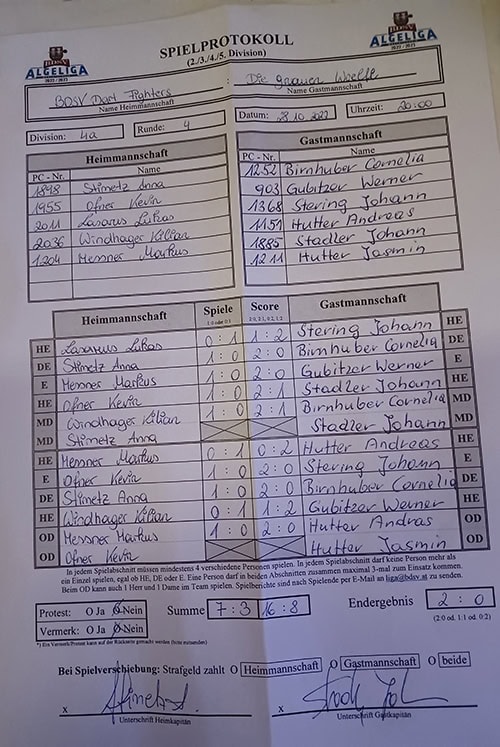 BDSV
ALGELIGA
2022 / 2023
SPIELPROTOKOLL
(2./3./4./5. Division)
BDSV
ALGELIGA
2022 / 2023
BDSV Dart Fighters : Die grauen Woelfe
Name Heimmannschaft Name Gastmannschaft
Division: 4a Runde: 4 Datum: 28.10.2022 Uhrzeit: 20:00
Heimmannschaft
PC - Nr. Name
1898 Stimetz Anna
1955 Ofner Kevin
2011 Lazarus Lukas
2036 Windhager Kilian
1204 Messner Markus
Gastmannschaft
PC - Nr. Name
1252 Birnhuber Cornelia
903 Gubitzer Werner
1368 Stering Johann
1151 Hutter Andreas
1885 Stadler Johann
1211 Hutter Jasmin
Heimmannschaft Spiele Score Gastmannschaft
1:0 oder 0:1 2:0, 2:1, 0:2, 1:2
HE Lazarus Lukas 0 : 1 1 : 2 Stering Johann HE
DE Stimetz Anna 1 : 0 2 : 0 Birnhuber Cornelia DE
E Messner Markus 1 : 0 2 : 0 Gubitzer Werner E
HE Ofner Kevin 1 : 0 2 : 1 Stadler Johann HE
MD Windhager Kilian 1 : 0 2 : 1 Birnhuber Cornelia MD
MD Stimetz Anna Stadler Johann MD
HE Messner Markus 0 : 1 0 : 2 Hutter Andreas HE
E Ofner Kevin 1 : 0 2 : 0 Stering Johann E
DE Stimetz Anna 1 : 0 2 : 0 Birnhuber Cornelia DE
HE Windhager Kilian 0 : 1 1 : 2 Gubitzer Werner HE
OD Messner Markus 1 : 0 2 : 0 Hutter Andras OD
OD Ofner Kevin Hutter Jasmin OD
In jedem Spielabschnitt müssen mindestens 4 verschiedene Personen spielen. In jedem Spielabschnitt darf keine Person mehr als
ein Einzel spielen, egal ob HE, DE oder E. Eine Person darf in beiden Abschnitten zusammen maximal 3-mal zum Einsatz kommen.
Beim OD kann auch 1 Herr und 1 Dame im Team spielen. Spielberichte sind nach Spielende per E-Mail an liga@bdsv.at zu senden.
Protest: O Ja O Nein Summe 7 : 3 16 : 8 Endergebnis 2 : 0
Vermerk: O Ja O Nein (2:0 od. 1:1 od. 0:2)
*) Ein Vermerk/Protest kann auf der Rückseite gemacht werden (bitte ausreden)
Bei Spielverschiebung: Strafgeld zahlt O Heimmannschaft O Gastmannschaft O beide
x x
Unterschrift Heimkapitän Unterschrift Gastkapitän